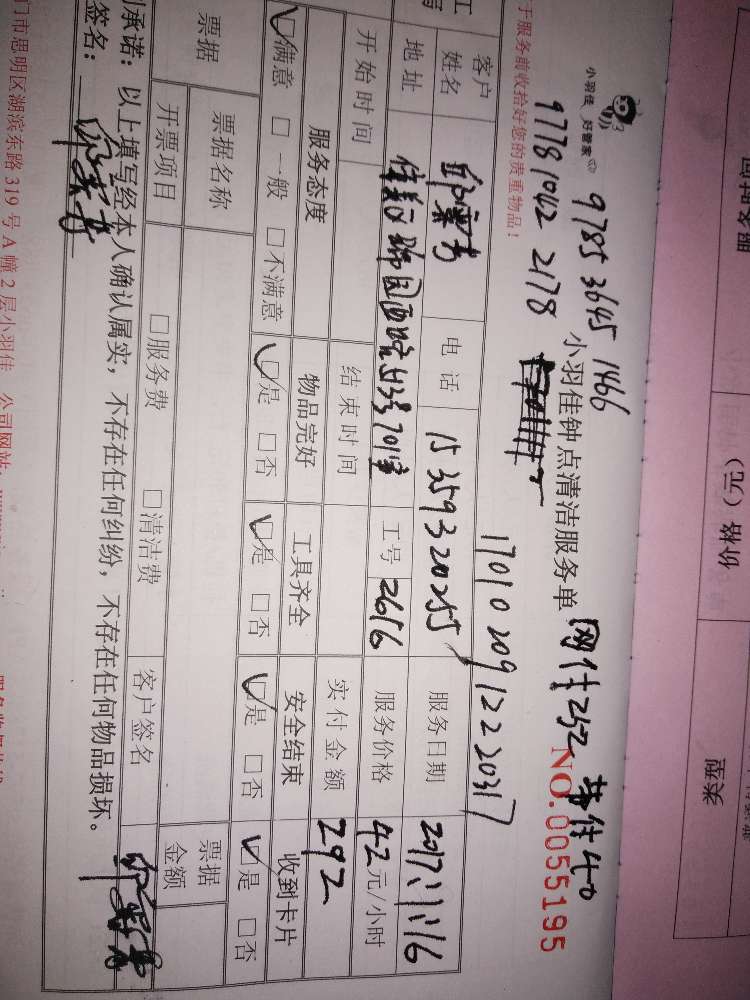 小羽佳 好管家
9785 3645 1466
97781042 2178
小羽佳钟点清洁服务单
网付252
NO.0055195
1701020912220317
于服务前收拾好您的贵重物品！
客户姓名
电话 15359320255
服务日期 2017.11.16
地址
工号 2616
服务价格 42元/小时
开始时间
结束时间
实付金额 292
服务态度
物品完好
工具齐全
安全结束
收到卡片
☑满意 □一般 □不满意
☑是 □否
☑是 □否
☑是 □否
☑是 □否
票据
票据名称
票据金额
开票项目
□服务费 □清洁费
客户签名
承诺：以上填写经本人确认属实，不存在任何纠纷，不存在任何物品损坏。
签名：
门市思明区湖滨东路 319 号 A 幢 2 层小羽佳 公司网站：
价格（元）
类型